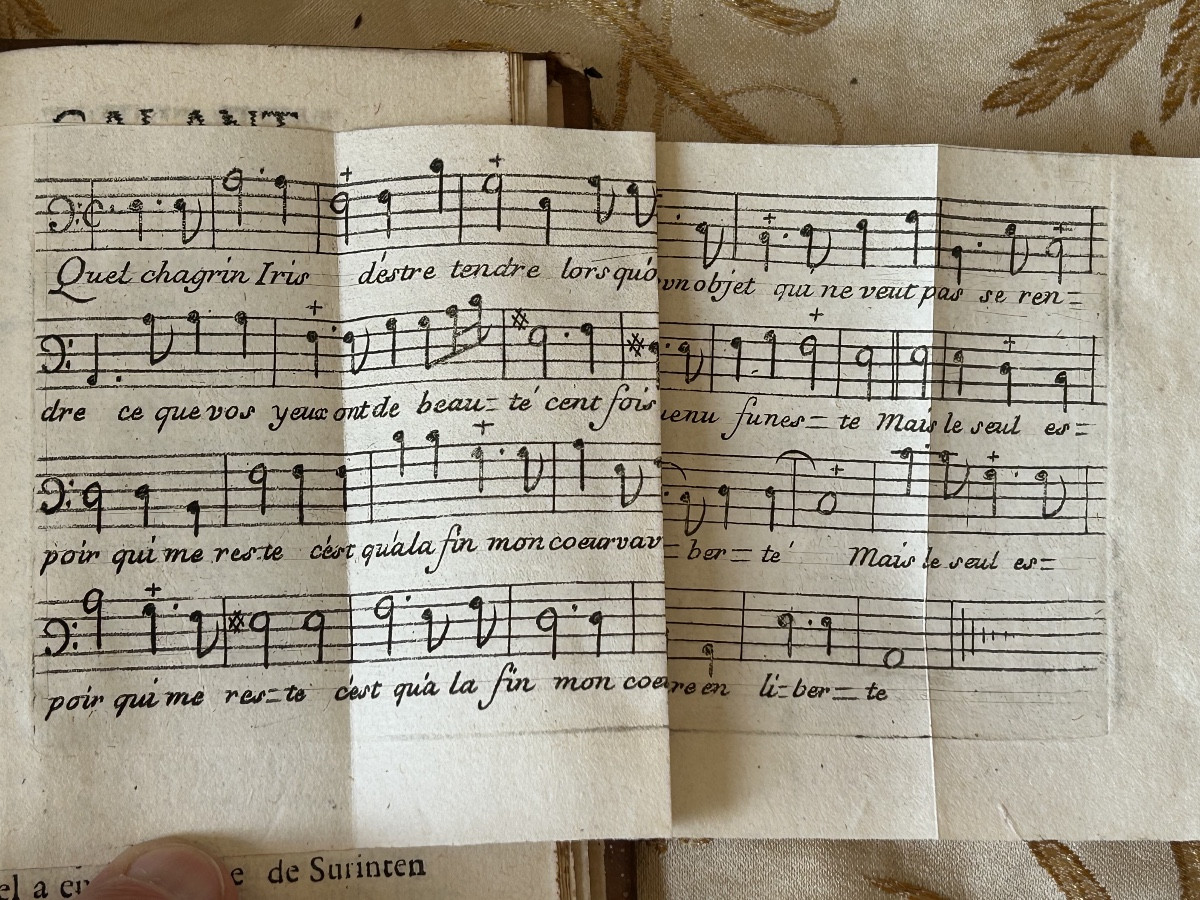 GALANT
Quel chagrin Iris déstre tendre lors qu'o vn objet qui ne veut pas se ren=
dre ce que vos yeux ont de beau= té cent fois uenu funes= te Mais le seul es=
poir qui me res=te c'est qu'a la fin mon coeur vav = ber= té Mais le seul es=
poir qui me res=te c'est qu'a la fin mon coe re en li=ber= te
el a e e de Surinten